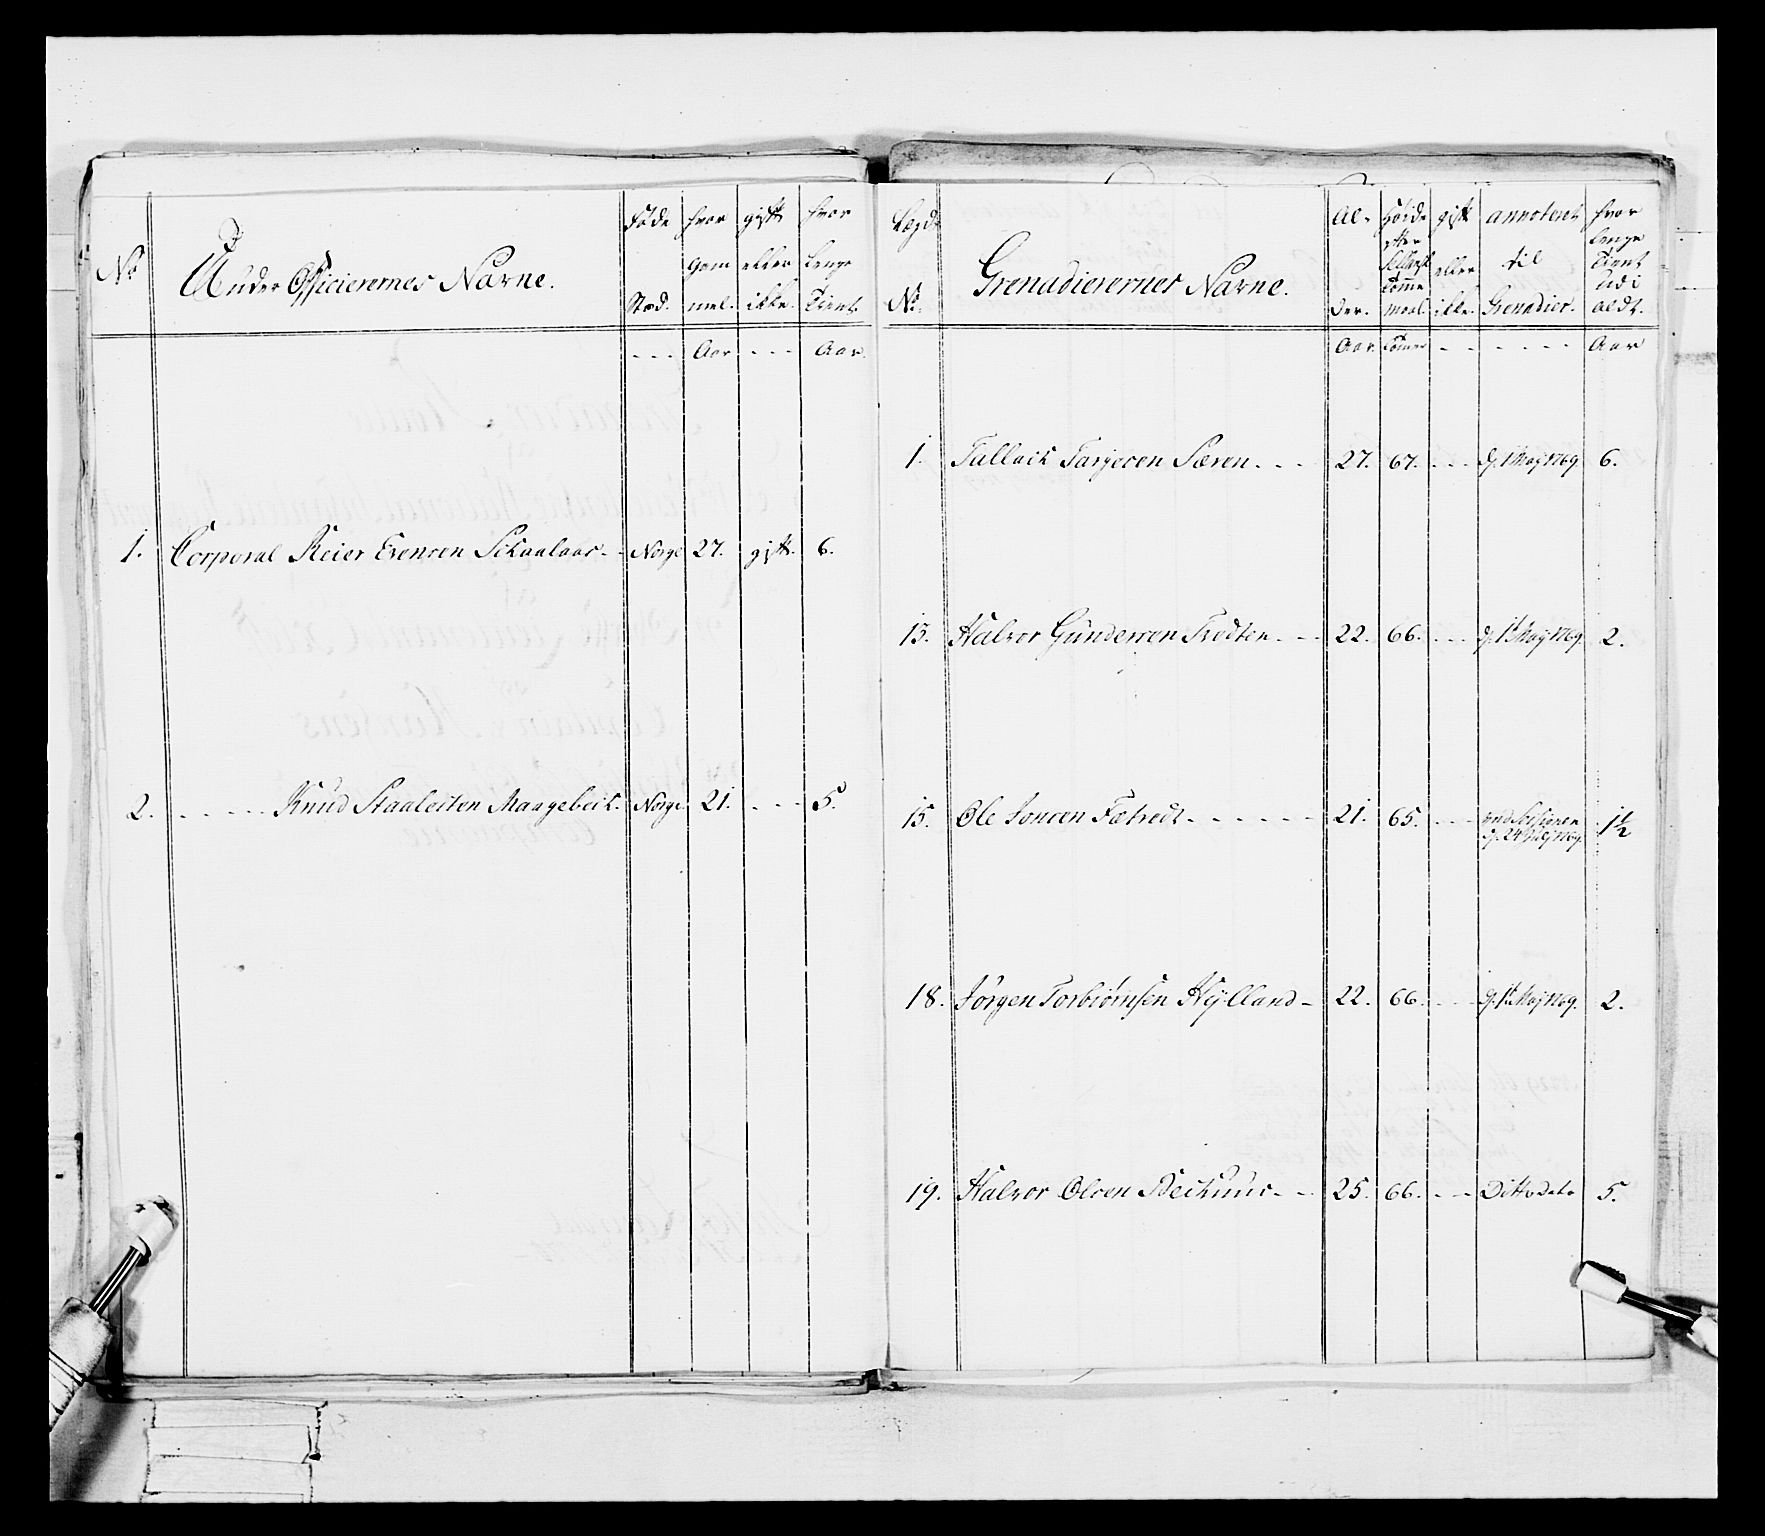 No
Under Officierernes Navne.
Føde Stæd.
hvor Gam mel.
gift eller ikke.
hvor lenge Tient.
- - - Aar - - - Aar.
1. Corporal Reier Evensen Skaalaas - - Norge 27. gift. 6.
2. - - - - - Knud Staalesen Maagebeck. Norge 21. - - - 5.
Lægds No.
Grenadierernes Navne.
Al- der.
Høide efter Tomme Maal.
gift eller ikke.
annoteret til Grenadier.
hvor lenge Tient udi aldt.
Aar. Tomer - - - - - - Aar
1. Tallack Tarjesen - - - 27. 67. - - - d. 1 Maj 1769. 6.
13. Halvor Gundersen - - - 22. 66. - - - d. 1 Maj 1769. 2.
15. Ole Jonsen - - - - - - 21. 65. - - - d. 24 1769. 1½
18. Jørgen Torbiørnsen Hylland - 22. 66. - - - d. 1 Maj 1769. 2.
19. Halvor Olsen - - 25. 66. - - - Ditto Dato 5.